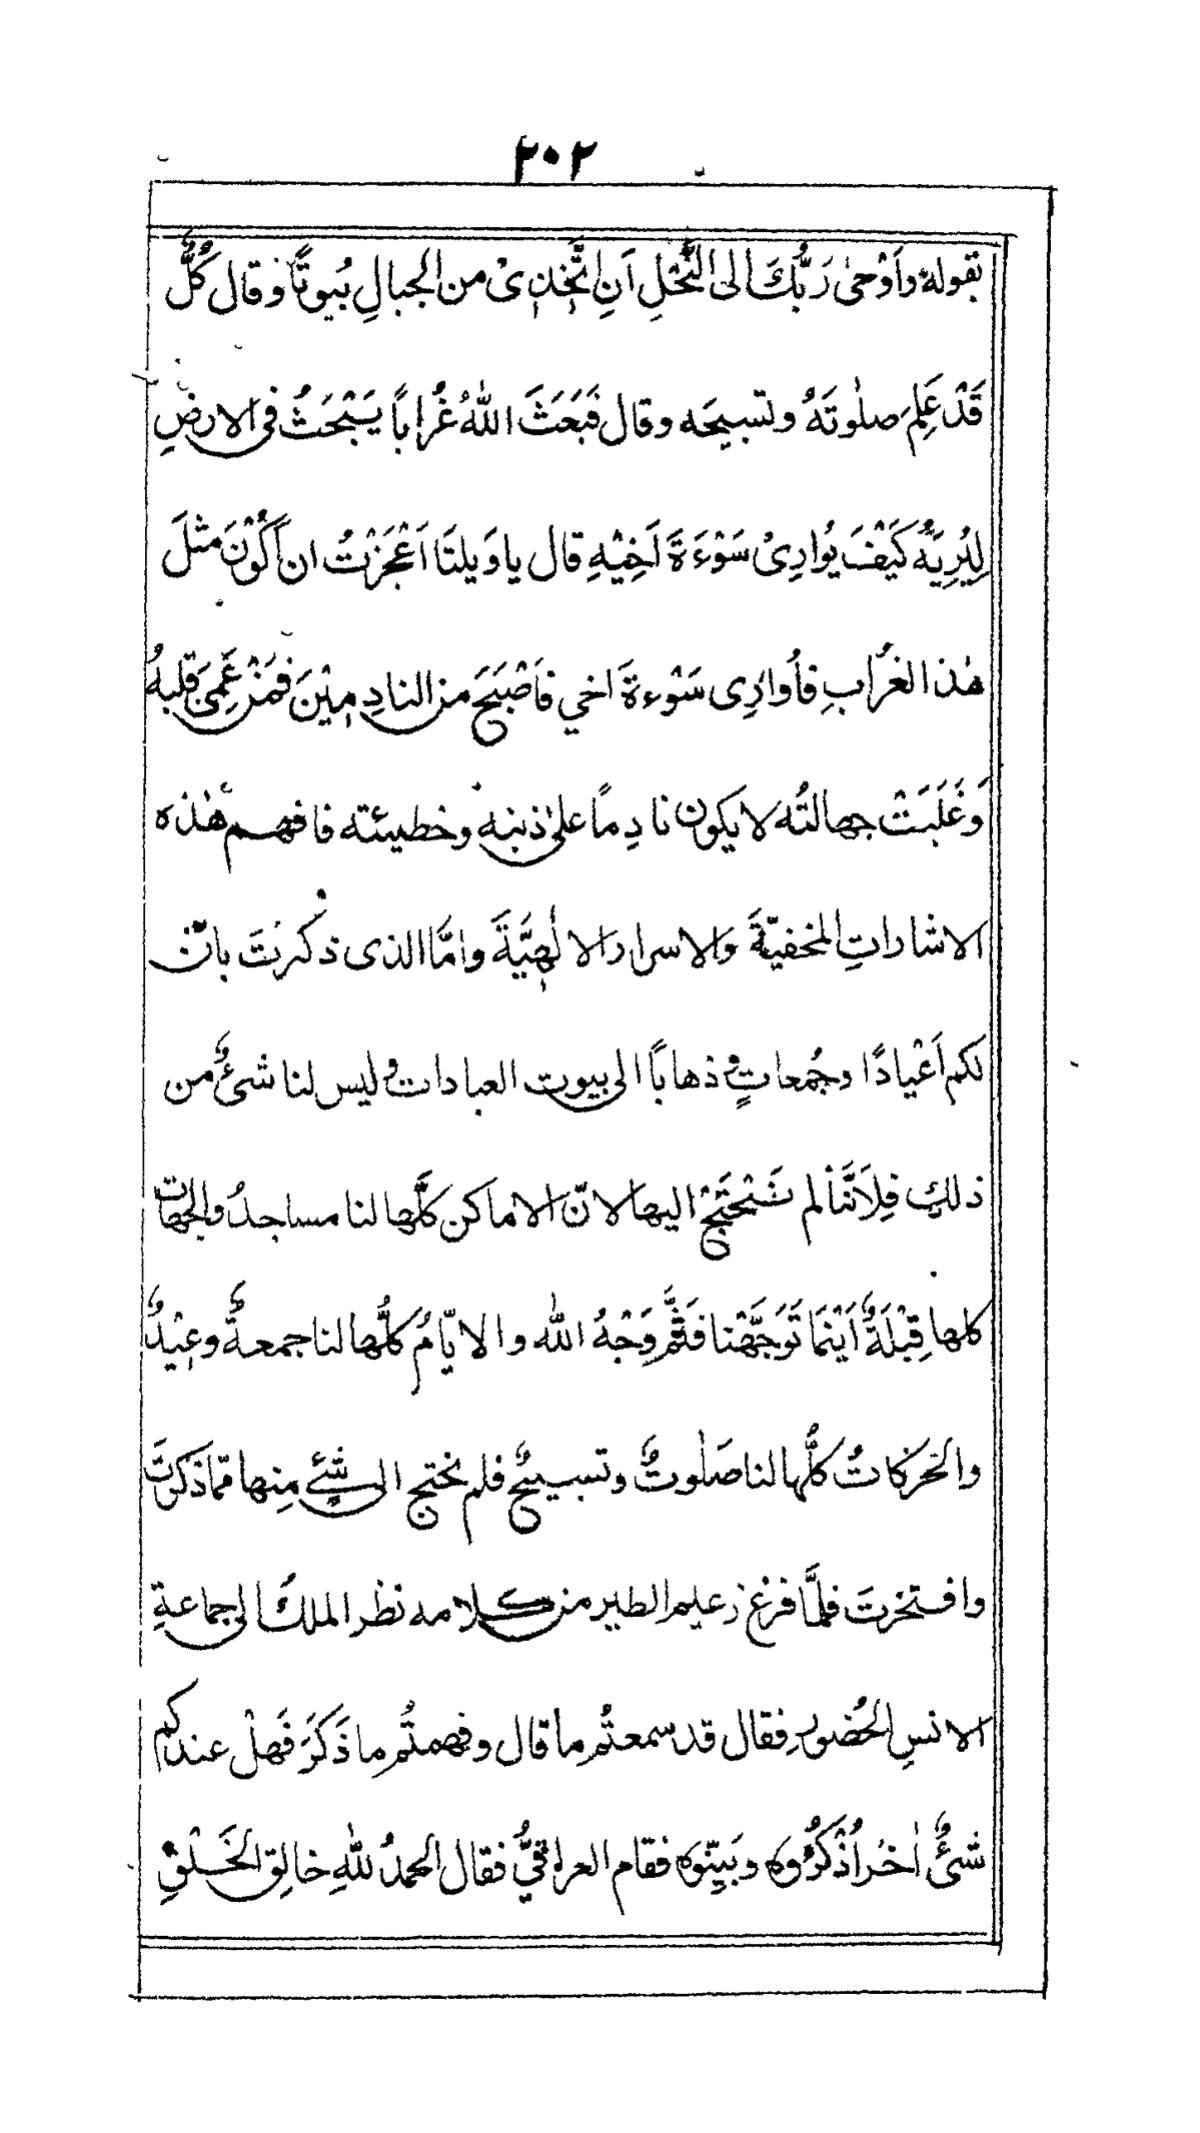 ٢٠٢
بقوله وَاَوْحٰى رَبُّكَ الى النَّحْلِ اَنِ اتَّخِذِىْ من الجبالِ بُيوتًا وقال كُلٌّ
قَدْ عَلِمَ صلٰوتَهُ وتسبيحَه وقال فَبَعَثَ اللّٰهُ غُرابًا يَبْحَثُ فى الارضِ
لِيُرِيَهُ كَيْفَ يُوارِىْ سَوْءَةَ اَخِيْهِ قال ياوَيلتَا اَعْجَزْتُ ان اَكُوْنَ مثلَ
هٰذا الغُرابِ فاُوارِى سَوْءةَ اخي فَاَصْبَحَ من النادِمِيْنَ فَمَنْ عَمِىَ قلبهُ
وَغَلَبَتْ جهالتُه لا يكون نادِمًا علىٰ ذنبه وخطيئته فافهم هٰذه
الاشاراتِ المخفيّةَ والاسرار الالٰهِيَّةَ وامَّا الذى ذكرتَ بانّ
لكم اَعْيادًا وجُمعاتٍ وذهابًا الى بيوت العبادات وليس لنا شئٌ من
ذلك فِلاَنَّا لم نَحْتَجْ اليها لانّ الاماكن كلَّها لنا مساجدُ والجهات
كلها قِبْلَةٌ اَيْنَمَا تَوَجَّهْنا فَثَمَّ وَجْهُ اللّٰه والايّامُ كلُّها لنا جمعةٌ وعِيْدٌ
والحركاتُ كلُّها لنا صَلٰوتٌ وتسبيحٌ فلم نحتج الى شئٍ مِنها ممّا ذكرتَ
وافتخرتَ فلمَّا فرغ زعيم الطير من كلامه نظر الملكُ الى جماعةِ
الانسِ الحُضورِ فقال قد سمعتُم ما قال وفهمتُم ما ذَكَرَ فَهلْ عندكم
شئٌ اٰخرُ اُذْكُرُوه وبَيِّنُوه فقام العراقيُّ فقال الحمدُ للّٰهِ خالِقِ الخَلْقِ